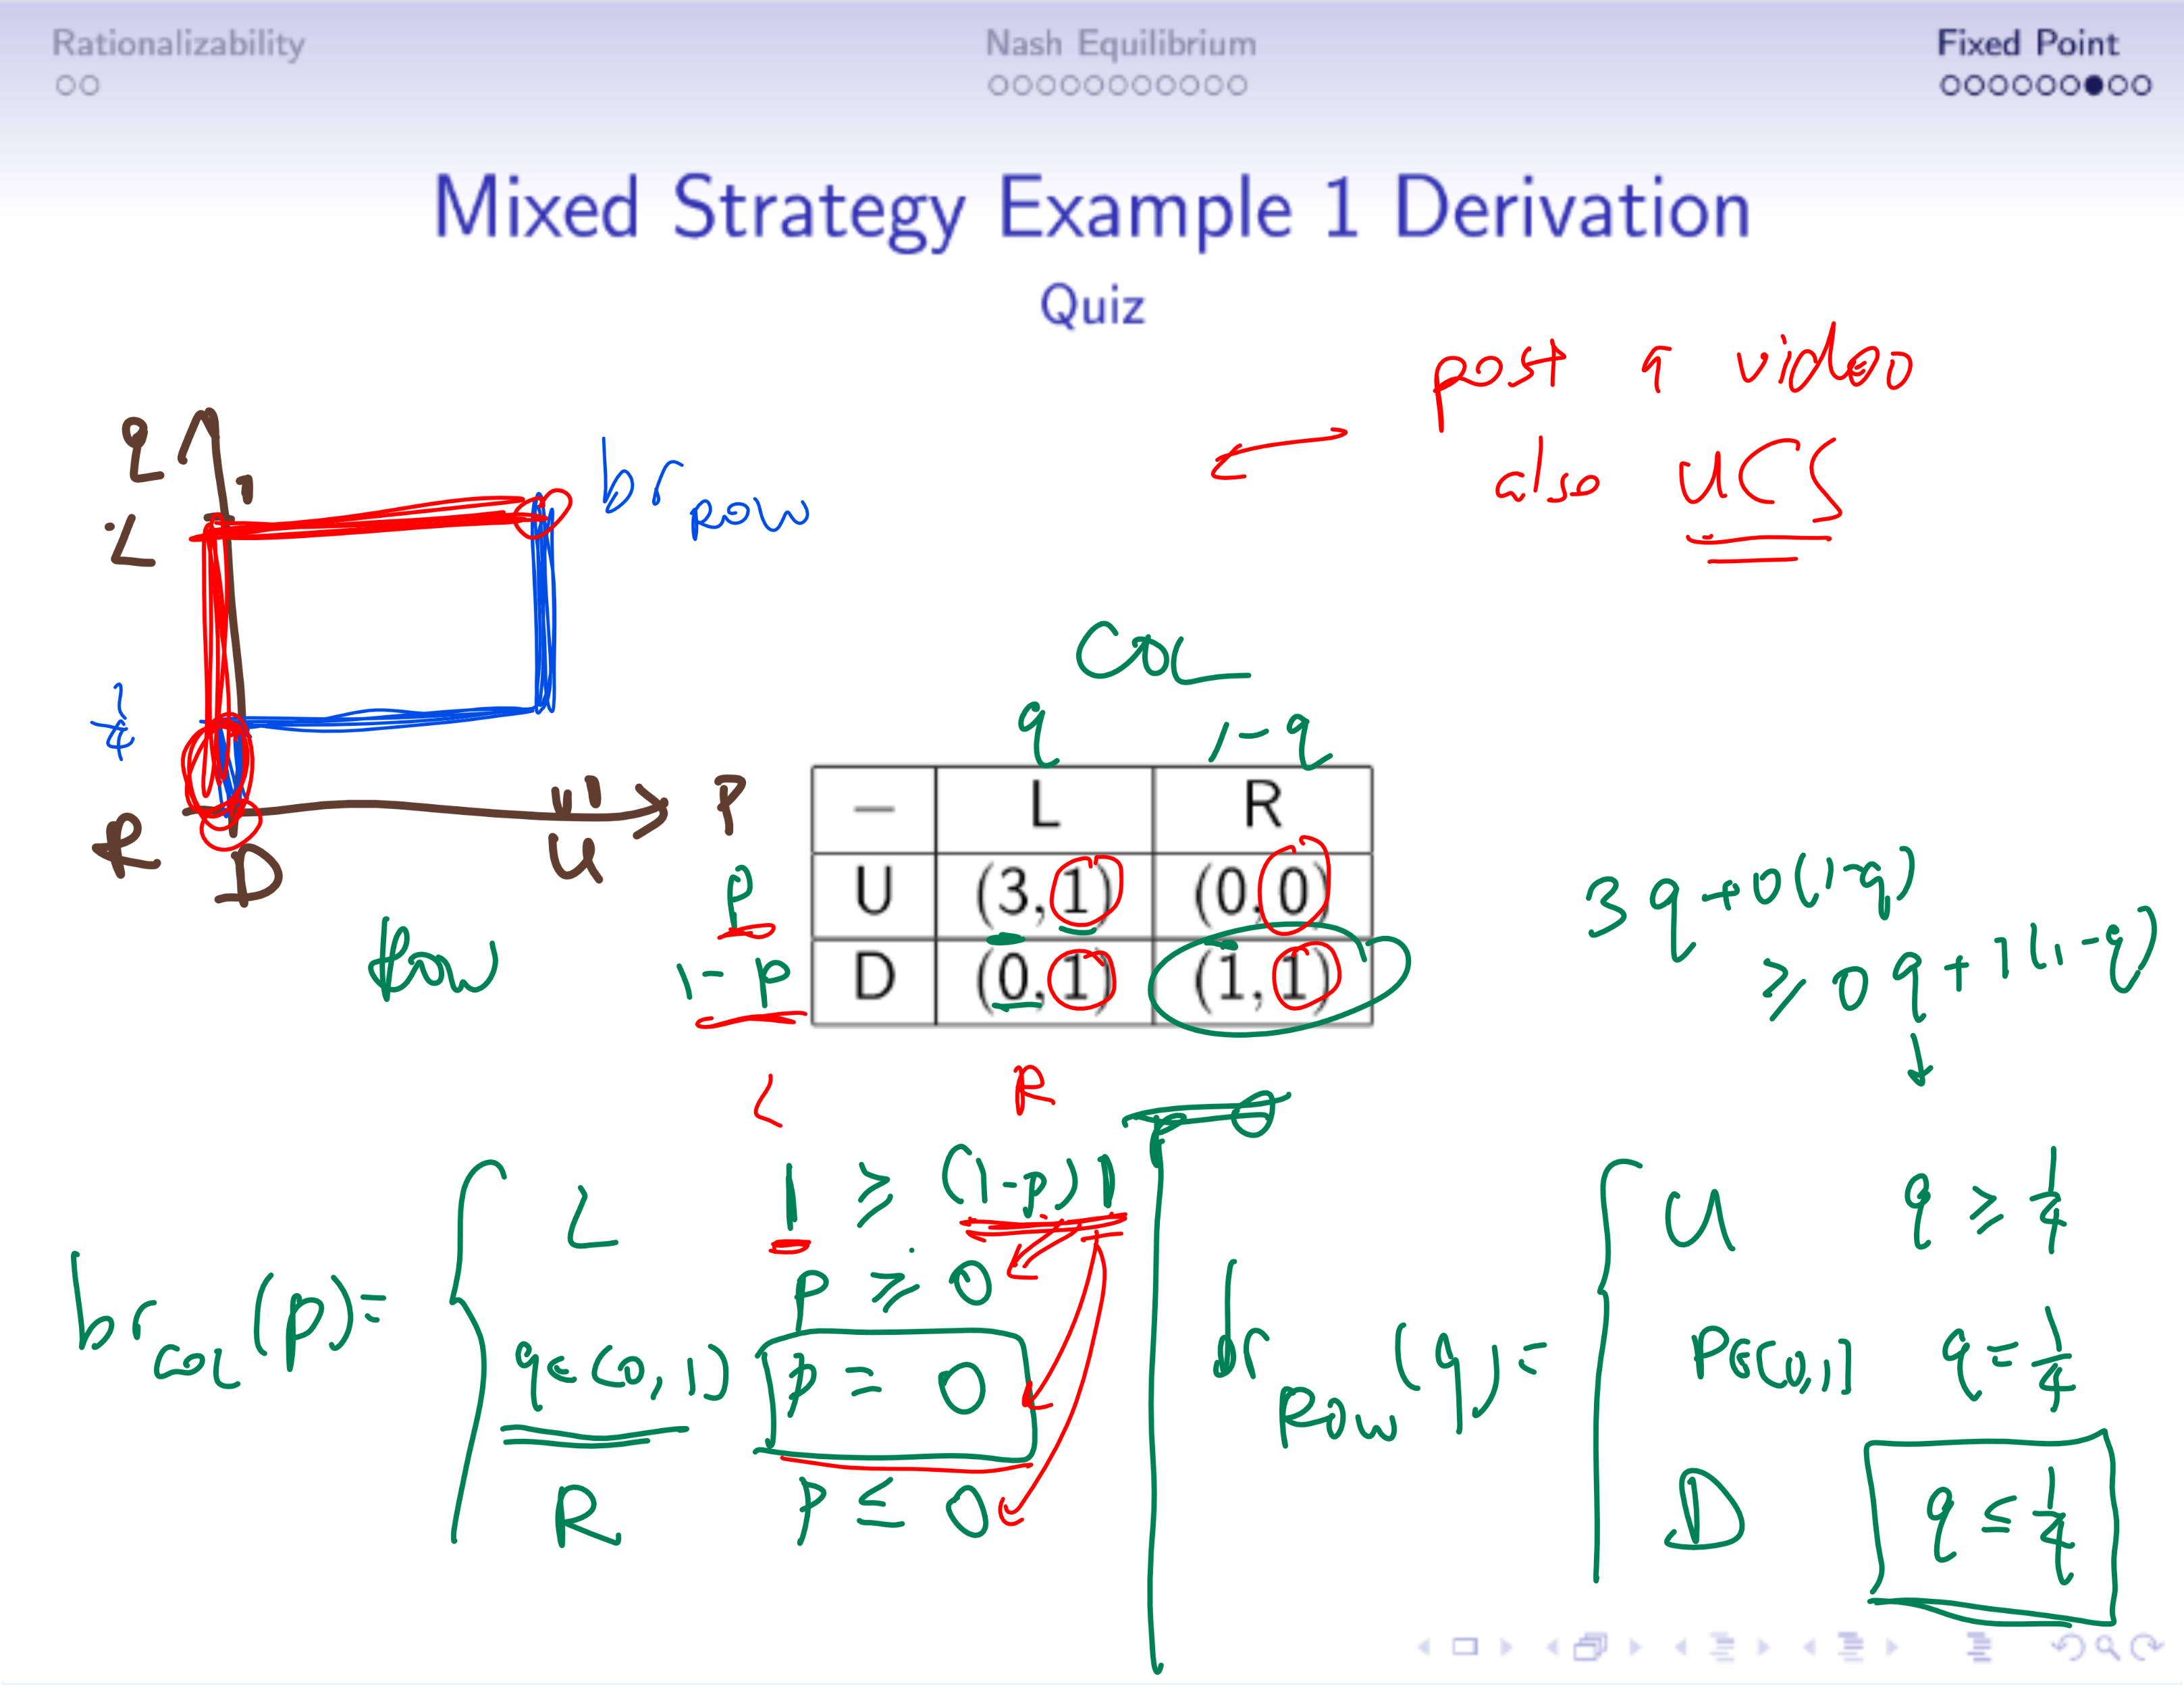 Rationalizability
Nash Equilibrium
Fixed Point
Mixed Strategy Example 1 Derivation
Quiz
post a video
also UCS
q
1
L
br ROW
1/4
R
D
1
U
P
COL
q 1-q
— L R
p U (3, 1) (0, 0)
1-p D (0, 1) (1, 1)
Row
3q+0(1-q)
≥ 0q+1(1-q)
↓
L R
p=0
br COL (p) =
L 1 ≥ (1-p)1
p ≥ 0
q ∈ (0, 1) p = 0
R p ≤ 0
br ROW (q) =
U q ≥ 1/4
P ∈ [0,1] q = 1/4
D q ≤ 1/4